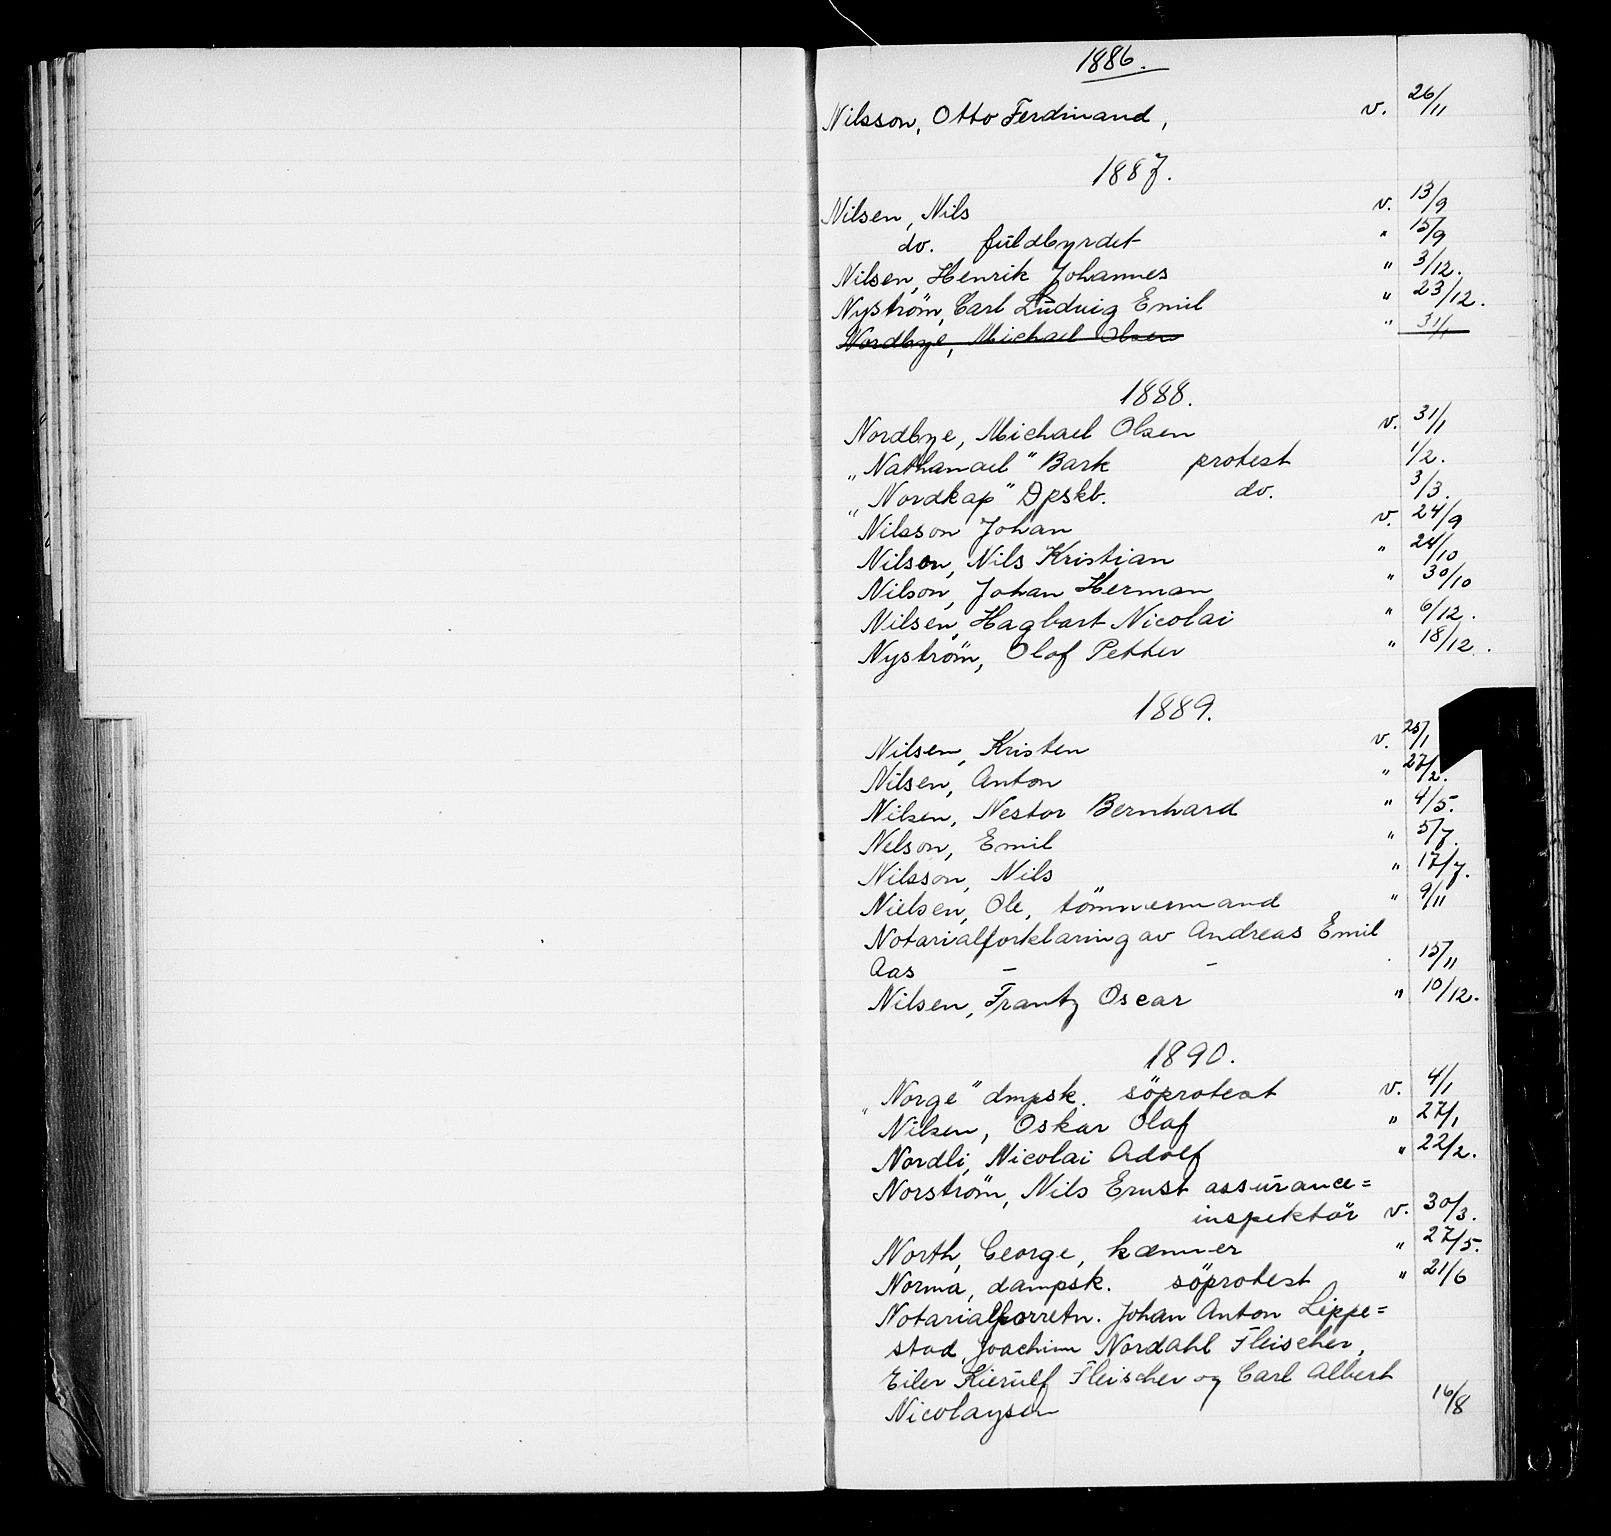 1886.
Nilsson, Otto Ferdinand, v. 26/11
1887.
Nilsen, Nils v. 13/9
do. fuldbyrdet " 15/9
Nilsen, Henrik Johannes " 3/12.
Nyström, Carl Ludvig Emil " 23/12.
Nordbye, Michael Olsen " 31/1
1888.
Nordbye, Michael Olsen v. 31/1
„Nathanael" Bark protest 1/2.
„Nordkap" Dpskb. do. 3/3.
Nilsson Johan v. 24/9
Nilson, Nils Kristian " 24/10
Nilson, Johan Herman " 30/10
Nilsen, Hagbart Nicolai " 6/12.
Nyström, Olof Petter " 18/12.
1889.
Nilsen, Kristen v. 25/1
Nilsen, Anton " 27/2.
Nilsen, Nestor Bernhard " 4/5.
Nelson, Emil " 5/7.
Nilsson, Nils " 17/7.
Nielsen, Ole, tömmermand " 9/11
Notarialforklaring av Andreas Emil
Aas – – 15/11
Nilsen, Frantz Oscar " 10/12.
1890.
„Norge" dmpsk. söprotest v. 4/1
Nilsen, Oskar Olaf " 27/1
Nordli, Nicolai Adolf " 22/2.
Norström, Nils Ernst assurance=
inspektör v. 30/3.
North, George, kæmner " 27/5.
Norma, dampsk. söprotest " 21/6
Notarialforretn. Johan Anton Lippe=
stad, Joachim Nordahl Fleischer,
Eiler Kierulf Fleischer og Carl Albert
Nicolaysen 16/8